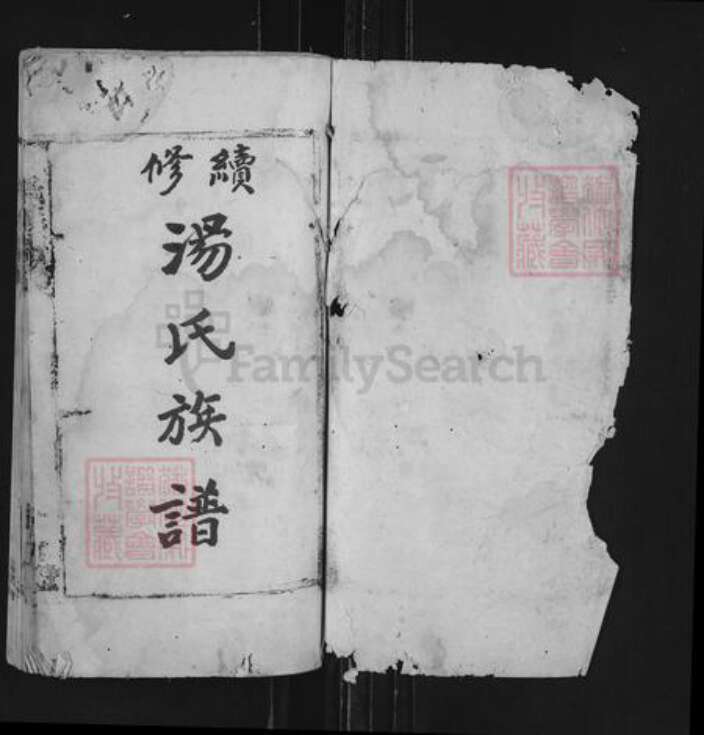 續修
湯氏族譜
FamilySearch